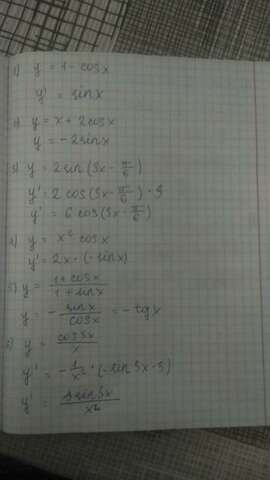 1) y = 1 - cosx
y' = sinx
2) y = x + 2cosx
y = -2sinx
3) y = 2sin(3x - π/6)
y' = 2 cos(3x - π/6) · 3
y' = 6 cos(3x - π/6)
4) y = x² cosx
y' = 2x · (-sinx)
5) y = (1 + cosx)/(1 + sinx)
y = - sinx/cosx = -tgx
6) y = cos5x/x
y' = - 1/x² · (-sin5x · 5)